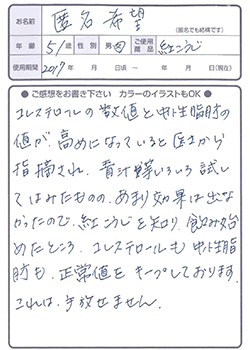 お名前 匿名希望
(匿名でも結構です)
年齢 51歳 性別 男・女 ご使用商品 紅こうじ
使用期間 2017年 月 日頃 ~ 年 月 日
● ご感想をお書き下さい カラーのイラストもOK ●
コレステロールの数値と中性脂肪の
値が高めになっていると医者から
指摘され、青汁等いろいろ試し
てはみたものの、あまり効果は出な
かったので、紅こうじを知り、飲み始
めたところ、コレステロールも中性脂
肪も、正常値をキープしております。
これは、手放せません。